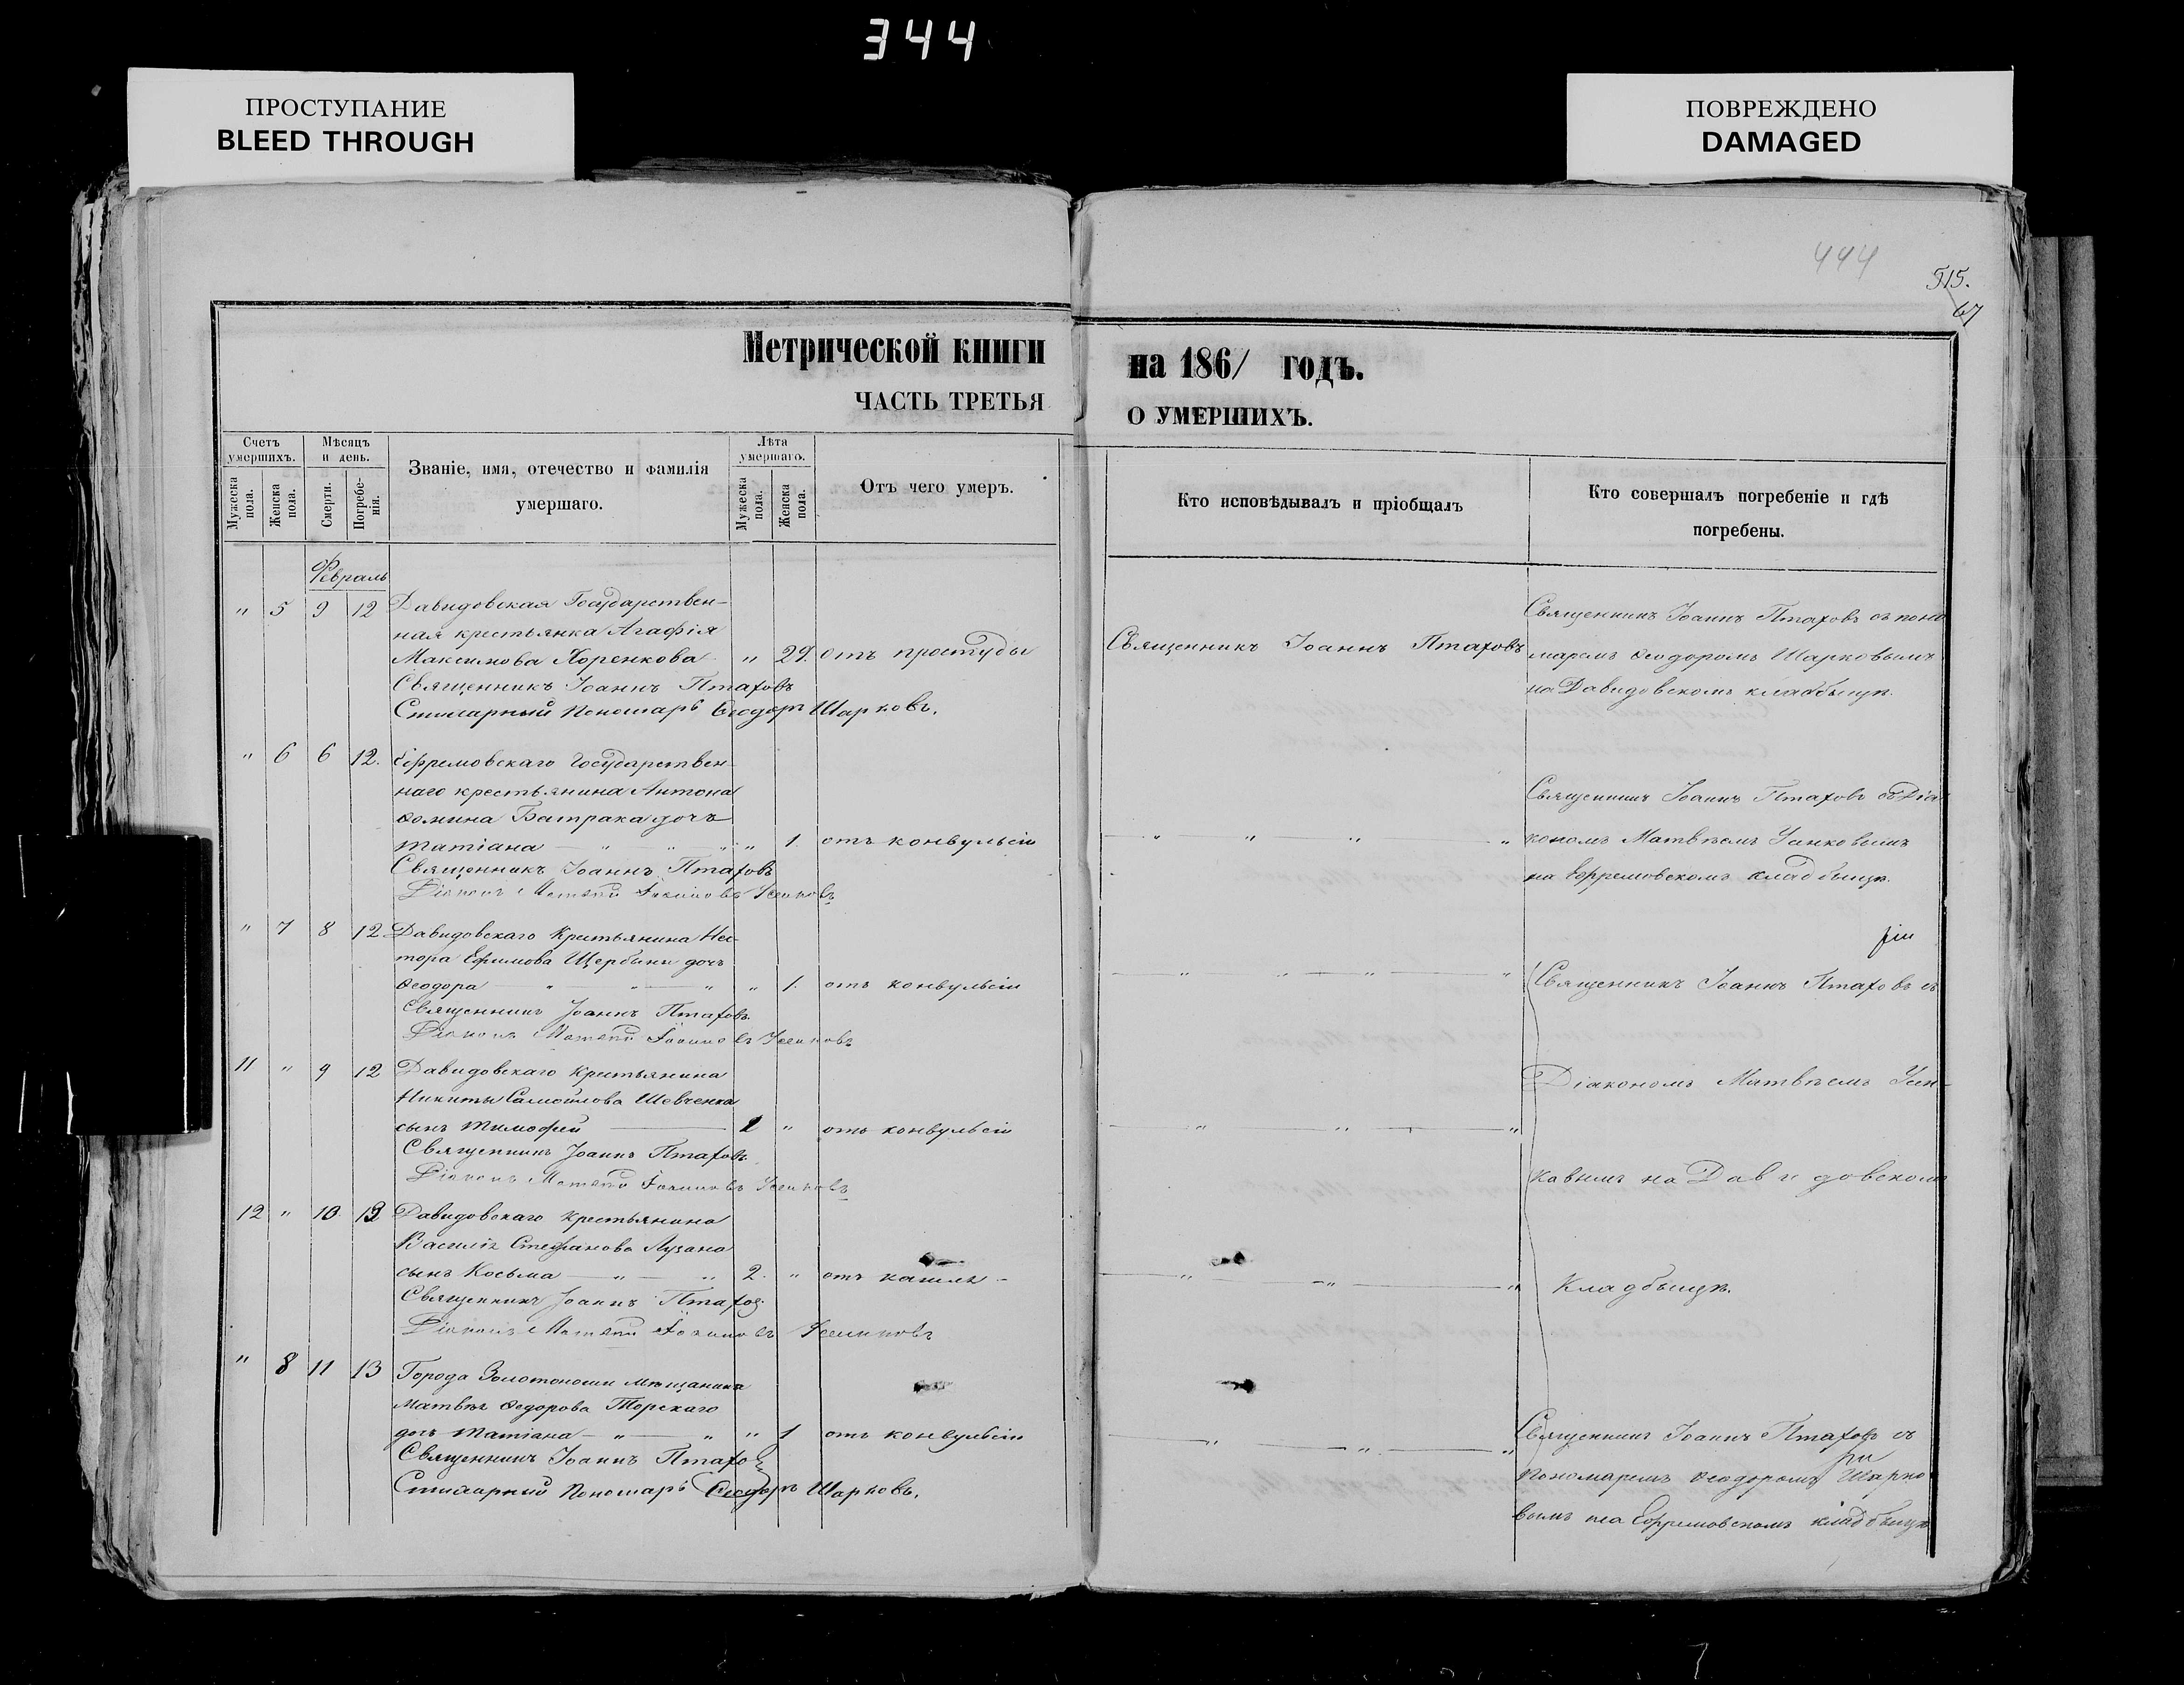 344
ПРОСТУПАНИЕ
BLEED THROUGH
ПОВРЕЖДЕНО
DAMAGED
444
515.
67
Метрической книги
ЧАСТЬ ТРЕТЬЯ
на 1861 годъ.
О УМЕРШИХЪ.
Счетъ умершихъ.
Мужеска пола.
Женска пола.
Мѣсяцъ и день.
Смерти.
Погребенія.
Званіе, имя, отечество и фамилія
умершаго.
Лѣта умершаго.
Мужеска пола.
Женска пола.
Отъ чего умеръ.
Кто исповѣдывалъ и пріобщалъ
Кто совершалъ погребеніе и гдѣ
погребены.
Февраль
" 5 9 12 Давидовская Государствен-
ная крестьянка Агафія
Максимова Хоренкова " 29. отъ простуды
Священникъ Іоаннъ Птаховъ
Стихарный Пономарь Ѳеодоръ Шарковъ.
Священникъ Іоаннъ Птаховъ
Священникъ Іоаннъ Птаховъ съ поно
маремъ Ѳеодоромъ Шарковымъ
на Давидовскомъ кладбыщѣ.
" 6 6 12. Ефремовскаго Государствен
наго крестьянина Антона
Ѳомина Батрака дочь
Татіана " " " " 1. отъ конвульсіи
Священникъ Іоаннъ Птаховъ
Діаконъ Матвѣй Іоанновъ
" " " "
Священникъ Іоаннъ Птаховъ съ Діа
кономъ Матвѣемъ
на Ефремовскомъ кладбыщѣ.
" 7 8 12 Давидовскаго Крестьянина Нес-
тора Ефимова Щербины дочь
Ѳеодора " " " " 1. отъ конвульсіи
Священникъ Іоаннъ Птаховъ.
Діаконъ Матвѣй Іоанновъ
" " " "
Священникъ Іоаннъ Птаховъ съ
11 " 9 12 Давидовскаго Крестьянина
Никиты Самойлова Шевченка
сынъ Тимофей 2 " отъ конвульсіи
Священникъ Іоаннъ Птаховъ
Діаконъ Матвѣй Іоанновъ
" " "
Діакономъ Матвѣемъ
на Давидовскомъ
12 " 10. 13 Давидовскаго Крестьянина
Василія Стефанова Лузана
сынъ Косьма " " 2. " отъ кашля
Священникъ Іоаннъ Птаховъ
Діаконъ Матвѣй Іоанновъ
" " "
Кладбыщѣ.
" 8 11 13 Города Золотоноши мѣщанина
Матвѣя Ѳедорова Торскаго
дочь Татіана " " " 1 отъ конвульсіи
Священникъ Іоаннъ Птаховъ
Стихарный Пономарь Ѳеодоръ Шарковъ.
" " "
Священникъ Іоаннъ Птаховъ съ
Пономаремъ Ѳеодоромъ Шарко
вымъ на Ефремовскомъ кладбыщѣ